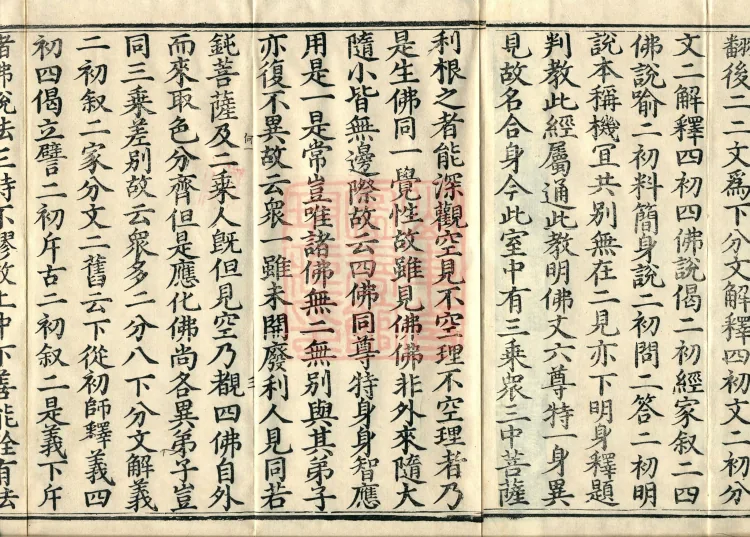 翻後二二文為下分文解釋四初文二初分
文二解釋四初四佛說偈二初經家叙二四
佛說喻二初料簡身說二初問二答二初明
說本稱機冝共別無在二見亦下明身釋題
判教此經屬通此教明佛丈六尊特一身異
見故名合身今此室中有三乘衆三中菩薩
利根之者能深觀空見不空理不空理者乃
是生佛同一覺性故雖見佛佛非外來隨大
隨小皆無邊際故云四佛同尊特身身智應
用是一是常豈唯諸佛無二無別與其弟子
亦復不異故云衆一雖未開廢利人見同若
鈍菩薩及二乘人旣但見空乃覩四佛自外
而來取色分齊但是應化佛尚各異弟子豈
同三乘差別故云衆多二分八下分文解義
二初叙二家分文二舊云下從初師釋義四
初四偈立譬二初斥古二初叙二是義下斥
者佛說法三時不謬故上中下善能詮有法